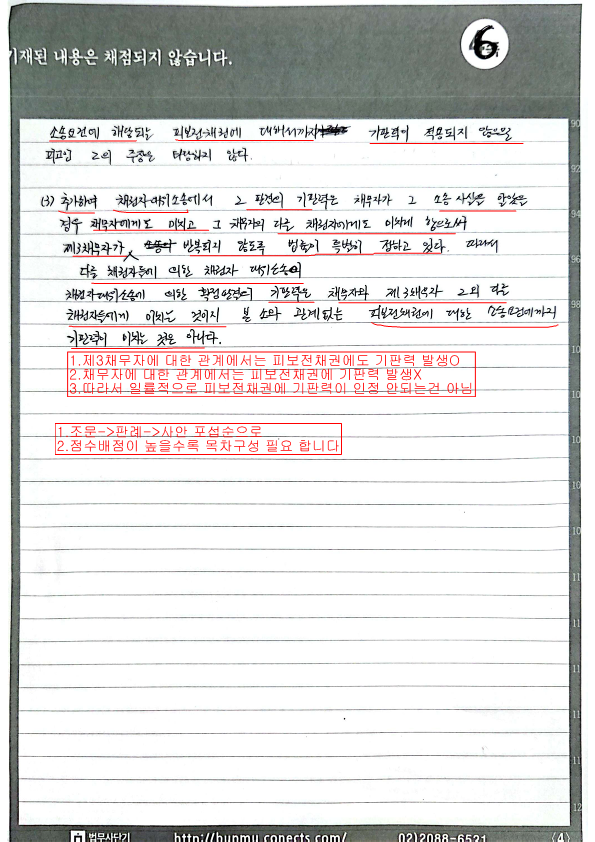 기재된 내용은 채점되지 않습니다.
6
90
소송요건에 해당되는 피보전채권에 대해서까지 기판력이 적용되지 않으므로
피고인 乙의 주장은 타당하지 않다.
92
(3) 추가하여 채권자대위소송에서 그 판결의 기판력은 채무자가 그 소송 사실을 알았을
94
경우 채무자에게도 미치고 그 채무자의 다른 채권자에게도 미치게 함으로써
제3채무자가 반복되지 않도록 법률이 특별히 정하고 있다. 따라서
96
다른 채권자들에 의한 채권자 대위소송의
채권자대위소송에 의한 확정판결의 기판력은 채무자와 제3채무자 그외 다른
98
채권자들에게 미치는 것이지 본 소와 관계없는 피보전채권에 대한 소송요건에까지
기판력이 미치는 것은 아니다.
10
1.제3채무자에 대한 관계에서는 피보전채권에도 기판력 발생O
2.채무자에 대한 관계에서는 피보전채권에 기판력 발생X
3.따라서 일률적으로 피보전채권에 기판력이 인정 안되는건 아님
10
1.조문->판례->사안 포섭순으로
2.점수배점이 높을수록 목차구성 필요 합니다
10
10
10
11
11
11
11
11
12
법무사단기 http://bubmu.conects.com/ 02)2088-6521 〈4〉